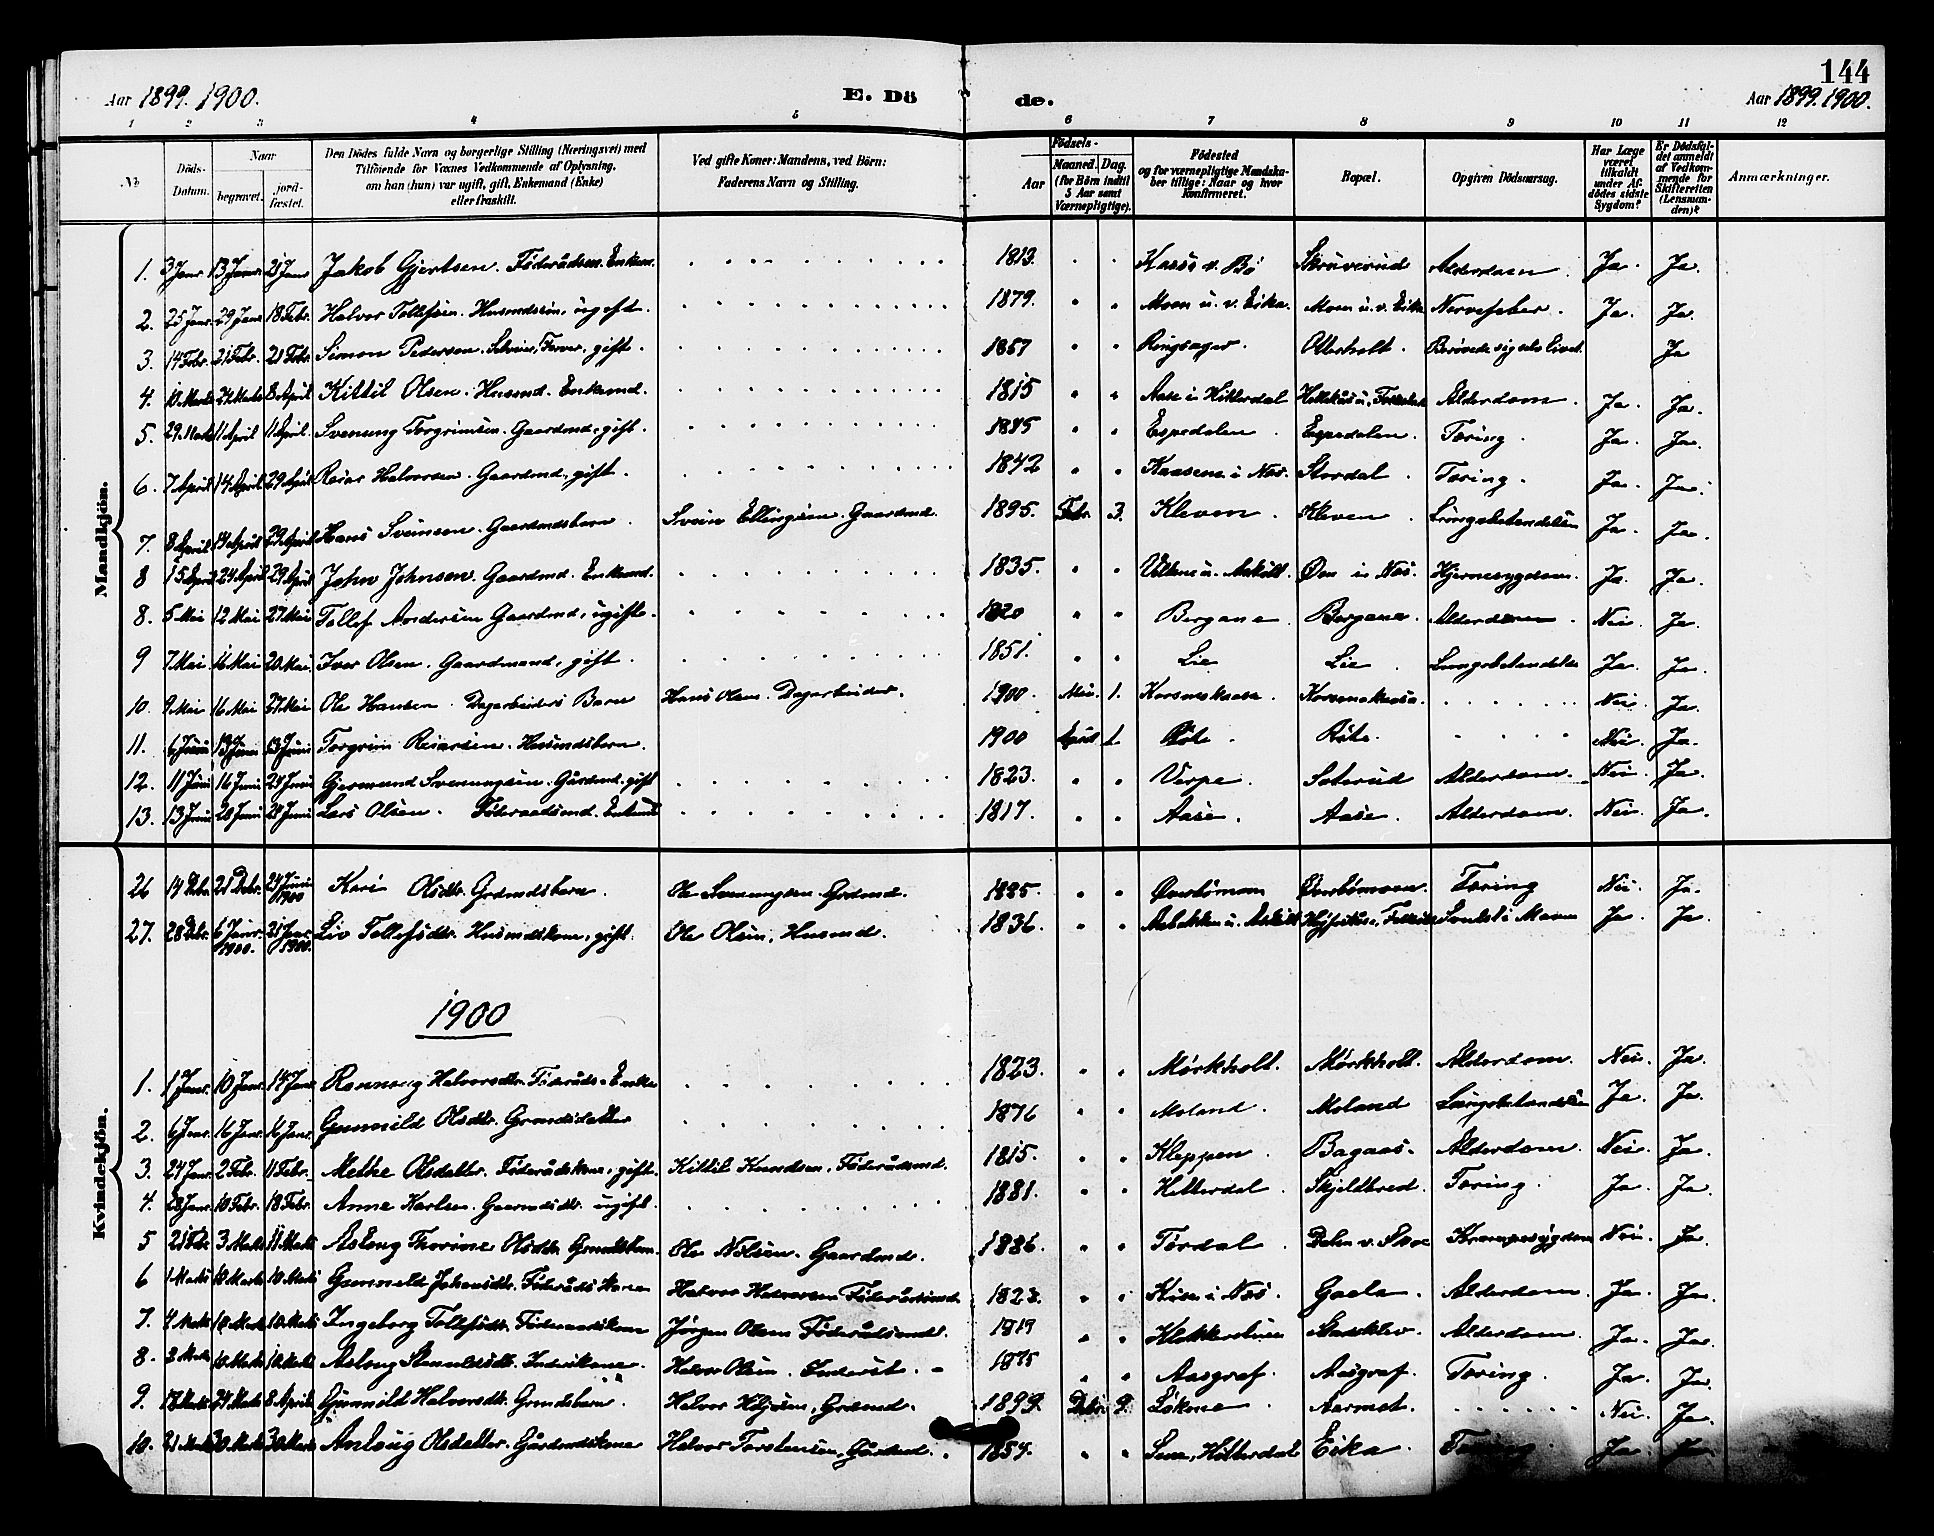 144
Aar 1899. 1900.
E. Dö
de.
Aar 1899. 1900.
1 2 3 4 5 6 7 8 9 10 11 12
№
Döds-Datum.
Naar
begravet.
jord-fæstet.
Den Dödes fulde Navn og borgerlige Stilling (Næringsvei) med
Tilföiende for Voxnes Vedkommende af Oplysning,
om han (hun) var ugift, gift, Enkemand (Enke)
eller fraskilt.
Ved gifte Koner: Mandens, ved Börn:
Faderens Navn og Stilling.
Födsels-
Aar
Maaned. Dag.
(for Börn indtil
5 Aar samt
Værnepligtige).
Födested
og for værnepligtige Mandska-
ber tillige: Naar og hvor
konfirmeret.
Bopæl.
Opgiven Dödsaarsag.
Har Læge
været
tilkaldt
under Af-
dödes sidste
Sygdom?
Er Dödsfal-
det anmeldt
af Vedkom-
mende for
Skifteretten
(Lensman-
den)?
Anmærkninger.
Mandkjön.
1. 3 Janr. 13 Janr. 21 Janr Jakob Gjertsen. Föderådsm. Enkem. 1813. Kaasa v. Bö Skruverud Alderdom. Ja. Ja.
2. 25 Janr. 29 Janr 18 Febr. Halvor Tollefsen. Husmdssön, ugift. 1879. Moen u. v. Eika. Moen u. v. Eika Nervefeber. Ja. Ja.
3. 14 Febr. 21 Febr. 21 Febr. Simon Pedersen. Farver, gift. 1857 Ringsager. Otterholt. Berövede sig selv livet. Ja
4. 24 Marts 8 April Kittil Olsen. Husmd. Enkemd. 1815 Aase i Hitterdal Alderdom. Ja. Ja.
5. 29. Marts 11 April 11 April. Svenung Torgrimsen. Gaardmd, gift. Espedalen. Espedalen. Tæring. Ja. Ja.
6. 7 April 14 April 29 April Reiar Halvorsen. Gaardmd, gift. 1842 Kaasene i Nes. Stordal. Tæring. Ja. Ja.
7. 8 April 14 April 29 April Hans Sveinsen. Gaardmdsbarn. Svein Ellingsen. Gaardmd. 1895. Febr. 3. Kleven. Kleven. Lungebetændelse Ja. Ja.
8 15 April 24 April 29 April John Johnsen. Gaardmd. Enkemd. 1835. Öen i Nes. Hjernesygdom. Ja. Ja.
8. 5 Mai 12 Mai 27 Mai Tollef Andersen Gaardmd, ugift. 1820 Bergane. Bergane. Alderdom. Nei. Ja.
9 7 Mai 16 Mai 20 Mai Iver Olsen. Gaardmand, gift. 1851. Lie Lie. Lungebetændelse Ja. Ja.
10. 9 Mai 16 Mai 27 Mai Ole Hansen. Dagarbeiders Barn Hans Olsen. Dagarbeider. 1900. Mai. 1. Nei. Ja.
11. 6 Juni 13 Juni 13 Juni Torgrim Reiarsen. Husmdsbarn. 1900 April 1. Röte. Röte. Nei. Ja.
12. 11 Juni 16 Juni 24 Juni Gjermund Svenungsen. Gårdmd. gift 1823. Verpe. Saterud Alderdom. Nei. Ja.
13. 13 Juni 20 Juni 24 Juni Lars Olsen. Föderaadsmd. Enkemd 1817. Aase. Aase. Alderdom. Nei. Ja.
Kvindekjön.
26 14 Debr. 21 Debr. 24 Juni 1900 Kari Olsdtr. Grdmdsbarn. Ole Svenungsen. Grdmd. Tæring Nei. Ja.
27. 28 Debr. 6 Janr. 1900. 21 Janr. 1900. Liv Tollefsdtr. Husmdskone, gift. Ole Olsen, Husmd. 1836. Ja. Ja
1900
1. 1 Janr. 10 Janr. 14 Janr. Rønnaug Halvorsdtr. Föderåds-Enke 1823. Mørkholt. Mørkholt. Alderdom. Nei. Ja.
2. 6 Janr. 16 Janr. 16 Janr. Gunnild Olsdtr. Grdmdsdatter 1876 Moland. Moland Lungebetændelse Ja. Ja.
3. 24 Janr. 2 Febr. 11 Febr. Methe Olsdatter. Föderådskone, gift. Kittil Knudsen. Föderådsmd. 1815. Kleppen. Bagaas. Alderdom. Nei. Ja.
4. 28 Janr. 10 Febr. 18 Febr. Anne Karlsen. Gaardmdsdtr. ugift. 1881. Hitterdal. Skjeldbred. Tæring. Ja. Ja.
5 21 Febr. 3 Marts 11 Marts Aslaug Thorine Olsdtr. Grdmdsbarn. Ole Nilsen. Gaardmd. 1886. Tørdal. Krampesygdom Nei. Ja.
6 1 Marts 10 Marts 10 Marts Gunnild Johansdtr. Föderådskone Halvor Halvorsen Föderådsmd. 1823. i Nes. Gaela. Alderdom. Ja. Ja.
7. 4 Marts 10 Marts 10 Marts Ingeborg Tollefsdtr. Föderaadskone Jørgen Olsen Föderådsmd. 1819 Stadskleiv. Alderdom. Ja. Ja.
8. 3 Marts 10 Marts 10 Marts Aslaug Inderstkone. Halvor Olsen. Inderst. 1875 Aasgraf. Aasgraf. Tæring. Ja. Ja.
9. 18 Marts 24 Marts 8 April Gunnild Halvorsdtr. Grdmdsbarn. Halvor Grdmd. 1899. Debr. 9. Nei. Ja.
10. 21 Marts 30 Marts 30 Marts Anlaug Olsdatter. Gårdmdskone Halvor Torstensen, Gårdmd. 1854. Sem, Hitterdal Eika. Tæring. Ja. Ja.